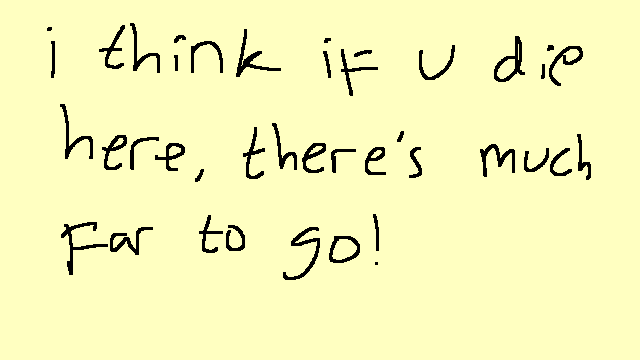 i think if u die
here, there's much
far to go!